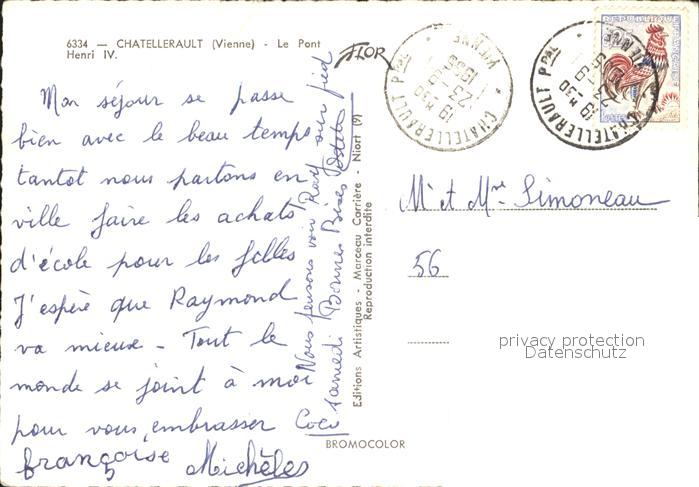 6334 — CHATELLERAULT (Vienne) - Le Pont
Henri IV.
FLOR
Mon séjour se passe
bien avec le beau temps
tantot nous partons en
ville faire les achats
d'école pour les filles
J'espère que Raymond
va mieux - Tout le
monde se joint à moi
pour vous embrasser Coco
françoise Michèles
Nous pensons voir Ray
samedi Bonnes Bises
Editions Artistiques - Marceau Carrière - Niort (9)
Reproduction interdite
BROMOCOLOR
CHATELLERAULT Ppal
VIENNE
19 H30
23-9
CHATELLERAULT Ppal
VIENNE
19 H30
23-9
REPUBLIQUE FRANÇAISE
Mr et Mme Simoneau
56
privacy protection
Datenschutz